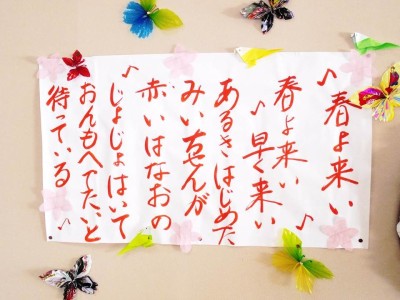 ♪春よ来い♪
春よ来い
♪早く来い
あるきはじめた
みいちゃんが
赤いはなおの
♪じょじょはいて
おんもへでたいと
待っている♪